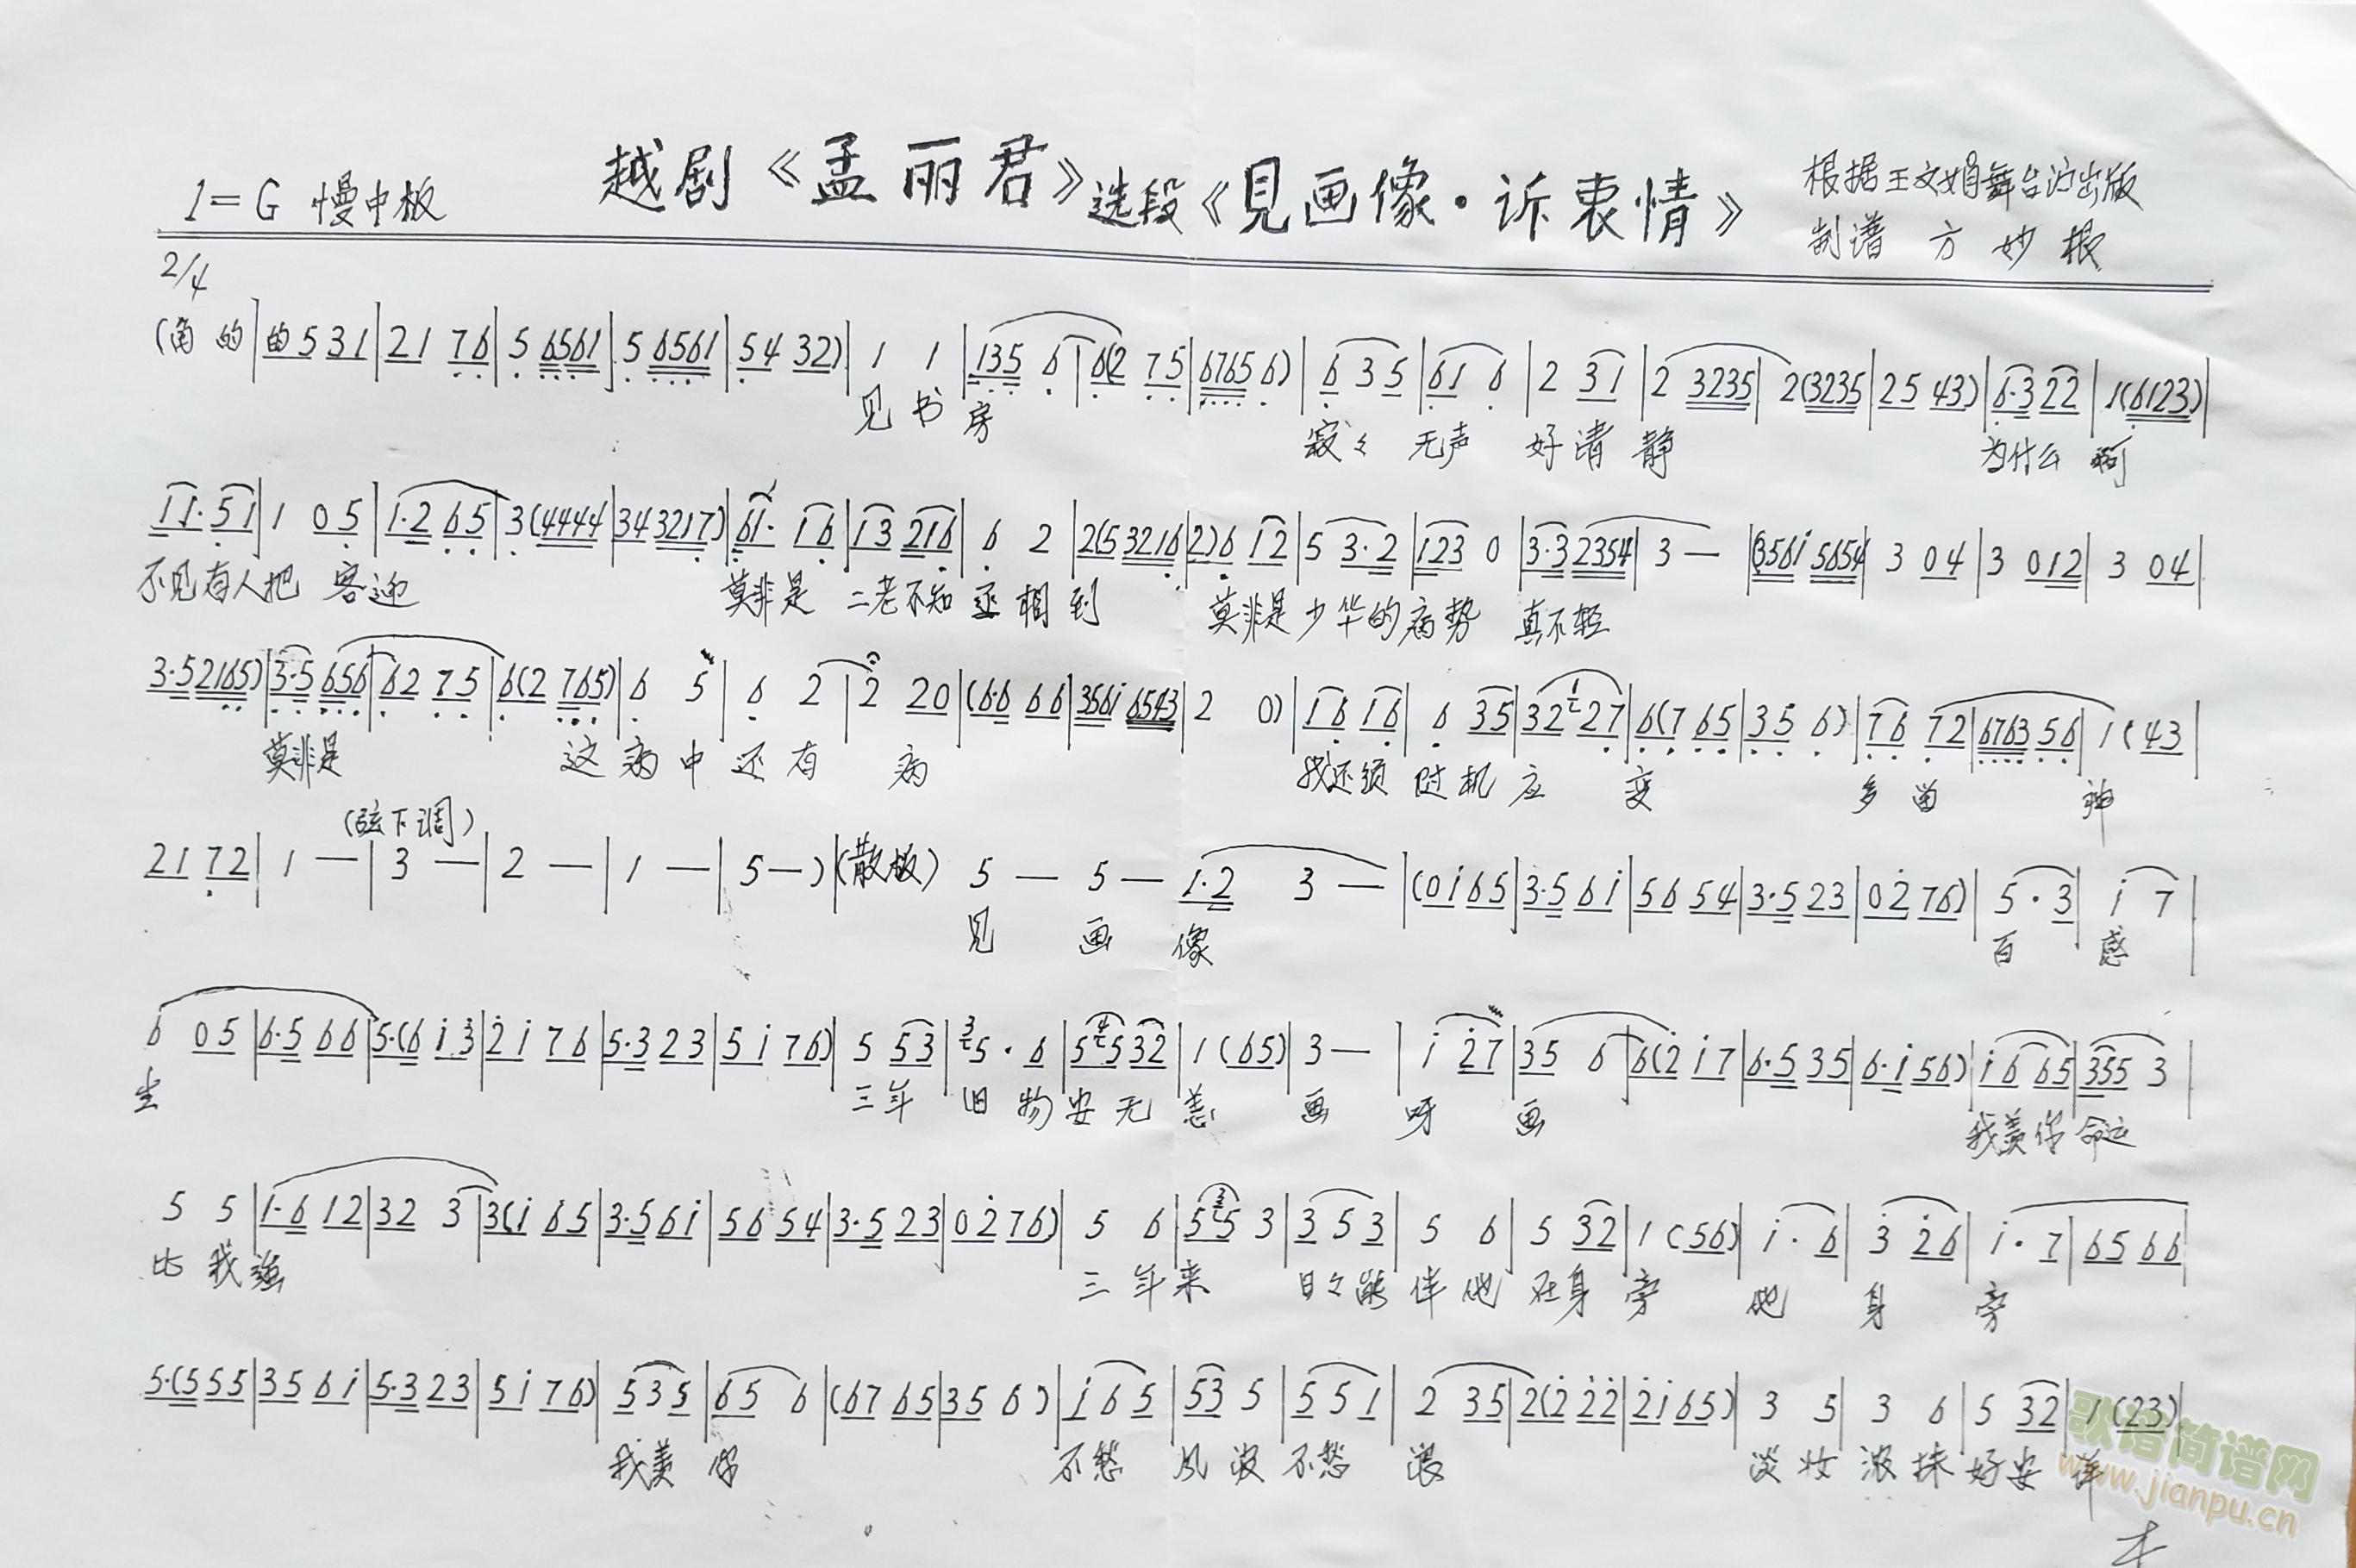 越剧《孟丽君》选段《見画像·诉衷情》
1=G 慢中板
根据王文娟舞台演出版
制谱 方妙根
2/4
(角 的|的 5 3 1|2 1 7 6|5 6561|5 6561|5 4 3 2)|1 1|135 6|6(2 7 5|6765 6)|6 3 5|6 1 6|2 3 1|2 3235|2(3235|2 5 4 3)|6·3 2 2|1(6123)|
见 书 房 寂々 无声 好 清 静 为什么 啊
1 1· 5 1|1 0 5|1·2 6 5|3(4444|34 3217)|61· 1 6|1 3 216|6 2|2(5 3216|2)6 1 2|5 3·2|123 0|3·3 2354|3 —|(3561 5654|3 0 4|3 012|3 0 4|
不见有人把 客迎 莫非是 二老不知 丞相到 莫非是少华的病势 真不轻
3·5 2165)|3·5 656|6 2 7 5|6(2 765)|6 5|6 2|2 2 0|(6·6 6 6|3561 6543|2 0)|1 6 1 6|6 3 5|3 2 2 7|6(7 6 5|3 5 6)|7 6 7 2|6763 5 6|1(4 3|
莫非是 这 病 中 还 有 病 我还须 随 机 应 变 多 留 神
(弦下调)
2 1 7 2|1 —|3 —|2 —|1 —|5 —)|(散板) 5 — 5 — 1·2 3 —|(0 i 6 5|3·5 6 i|5 6 5 4|3·5 2 3|0 2 7 6)|5·3|i 7|
见 画 像 百 感
6 0 5|6·5 6 6|5·(6 i 3|2 i 7 6|5·3 2 3|5 i 7 6)|5 5 3|5·6|5 5 3 2|1(6 5)|3 —|i 2 7|3 5 6|6(2 i 7|6·5 3 5|6·i 5 6)|i 6 6 5|355 3|
生 三年 旧 物 安 无 恙 画 呀 画 我羡你 命运
5 5|1·6 1 2|3 2 3|3(i 6 5|3·5 6 i|5 6 5 4|3·5 2 3|0 2 7 6)|5 6|5 5 3|3 5 3|5 6|5 3 2|1(5 6)|i·6|3 2 6|i·7|6 5 6 6|
比 我 强 三 年 来 日々能 伴 他 在身 旁 他 身 旁
5·(5 5 5|3 5 6 i|5·3 2 3|5 i 7 6)|5 3 5|6 5 6|(6 7 6 5|3 5 6)|i 6 5|5 3 5|5 5 1|2 3 5|2(2 2 2|2 i 6 5)|3 5|3 6|5 3 2|1(2 3)|
我羡 你 不愁 风 波 不愁 浪 淡 妆 浓 抹 好 安 详
歌谱简谱网
www.jianpu.cn